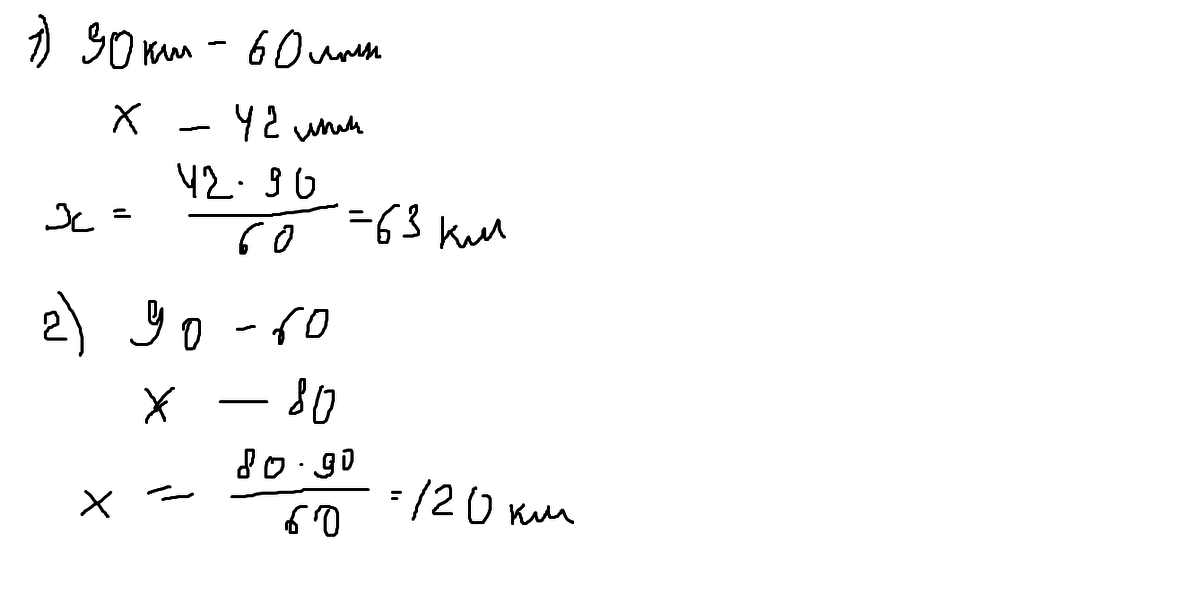 1) 90км - 60мин
x - 42мин
x = 42 · 90 / 60 = 63 км
2) 90 - 60
x - 80
x = 80 · 90 / 60 = 120 км